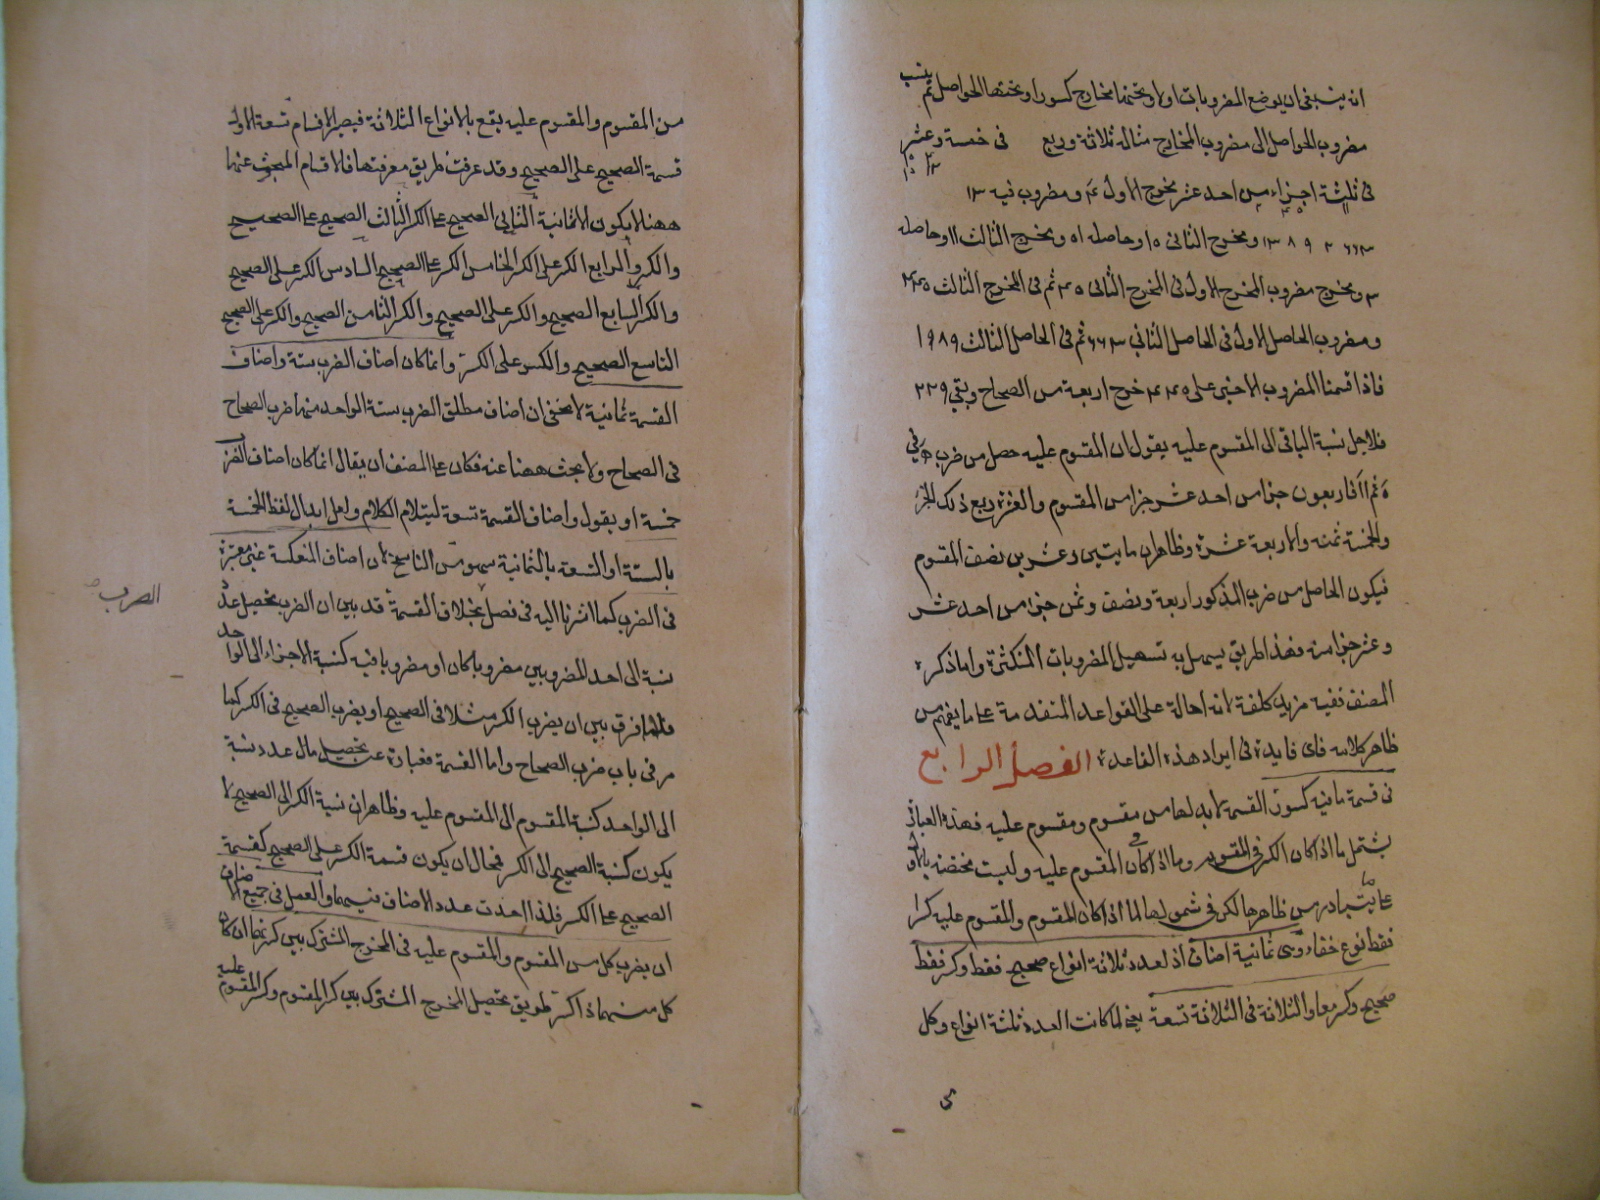 انه ينبغى ان يوضع المضروبات اولا وتحتها مخارج كسورها وتحتها الحواصل ثم ينسب
مضروب الحواصل الى مضروب المخارج مثاله ثلاثة وربع فى خمسة وعشر
فى ثلثة اجزاء من احد عشر مخرج الاول ۴ ومضروب فيه ۱۳
ومخرج الثانى ۱۵ وحاصله ۵۱ ومخرج الثالث ۱۱ وحاصله
۳ ومخرج مضروب المخرج الاول فى المخرج الثانى ثم فى المخرج الثالث
ومضروب الحاصل الاول فى الحاصل الثانى ۶۶۳ ثم فى الحاصل الثالث ۱۹۸۹
فاذا قسمنا المضروب الاخير على خرج اربعة من الصحاح وبقى ۲۲۹
فلاجل نسبة الباقى الى المقسوم عليه يقول ان المقسوم عليه حصل من ضرب فى
اربعون جزا من احد عشر جزا من المقسوم والعشرة ربع ذلك الجزء
والخمسة ثمنه والاربعة عشرة وظاهر ان مايتين وعشرين نصف المقسوم
فيكون الحاصل من ضرب المذكور اربعة ونصف وثمن جزا من احد عشر
وعشر جزا منه فهذا طريق يسهل به تسهيل المضروبات المتكثرة واما ذكره
المصنف ففيه مزيد كلفة لانه احالة على القواعد المتقدمة على ما يفهم من
ظاهر كلامه فاى فايدة فى ايراد هذه القاعدة الفصل الرابع
فى قسمة ما فيه كسور القسمة لابد لها من مقسوم ومقسوم عليه فهذه العبارة
يشتمل ما اذا كان الكسر فى المقسوم وما اذا كان فى المقسوم عليه وليست مختصة بالاول
على ما يتبادر من ظاهرها لكن فى شمولها لما اذا كان المقسوم والمقسوم عليه كسرا
فقط نوع خفاء وهى ثمانية اصناف اذ لعدد ثلاثة انواع صحيح فقط وكسر فقط
صحيح وكسر معا والثلاثة فى الثلاثة تسعة يعنى لما كانت العدد ثلثة انواع وكل
من المقسوم والمقسوم عليه يقع بالانواع الثلاثة فيصير الاقسام تسعة الاول
قسمة الصحيح على الصحيح وقد عرفت طريق معرفتها فالاقسام المبحث عنها
ههنا لا يكون الا ثمانية الثانى الصحيح على الكسر الثالث الصحيح على الصحيح
والكسر والرابع الكسر على الكسر الخامس الكسر على الصحيح السادس الكسر على الصحيح
والكسر السابع الصحيح والكسر على الصحيح والكسر الثامن الصحيح والكسر على الصحيح
التاسع الصحيح والكسر على الكسر وانما كان اصناف الضرب ستة واصناف
القسمة ثمانية لا يخفى ان اصناف مطلق الضرب ستة الواحد منها ضرب الصحاح
فى الصحاح ولا بحث ههنا عنه فكان على المصنف ان يقال انما كان اصناف الضرب
خمسة او يقول واصناف القسمة تسعة ليتلام الكلام ولعل ابدال لفظ الخمسة
بالستة او التسعة بالثمانية سهو من الناسخ لان اصناف المنعكسة غير معتبرة
فى الضرب كما اشرنا اليه فى فصل بخلاف القسمة قد بين ان الضرب تحصيل عدد
نسبة الى احد المضروبين مضروبا كان او مضروبا فيه كنسبة الاجزاء الى الواحد
فلا فرق بين ان يضرب الكسر مثلا فى الصحيح او يضرب الصحيح فى الكسر كما
مر فى باب ضرب الصحاح واما القسمة فعبارة عن تحصيل مال عدد نسبة
الى الواحد كنسبة المقسوم الى المقسوم عليه وظاهر ان نسبة الكسر الى الصحيح لا
يكون كنسبة الصحيح الى الكسر فمحال ان يكون قسمة الكسر على الصحيح كقسمة
الصحيح على الكسر فلذا حدث عدد الاصناف فيهما والعمل فى جميع الاصناف
ان يضرب كل من المقسوم والمقسوم عليه فى المخرج المشترك بين كسريهما ان كان
كل منهما ذا كسر طريق تحصيل المخرج المشترك بين كسر المقسوم وكسر المقسوم عليه
الضرب